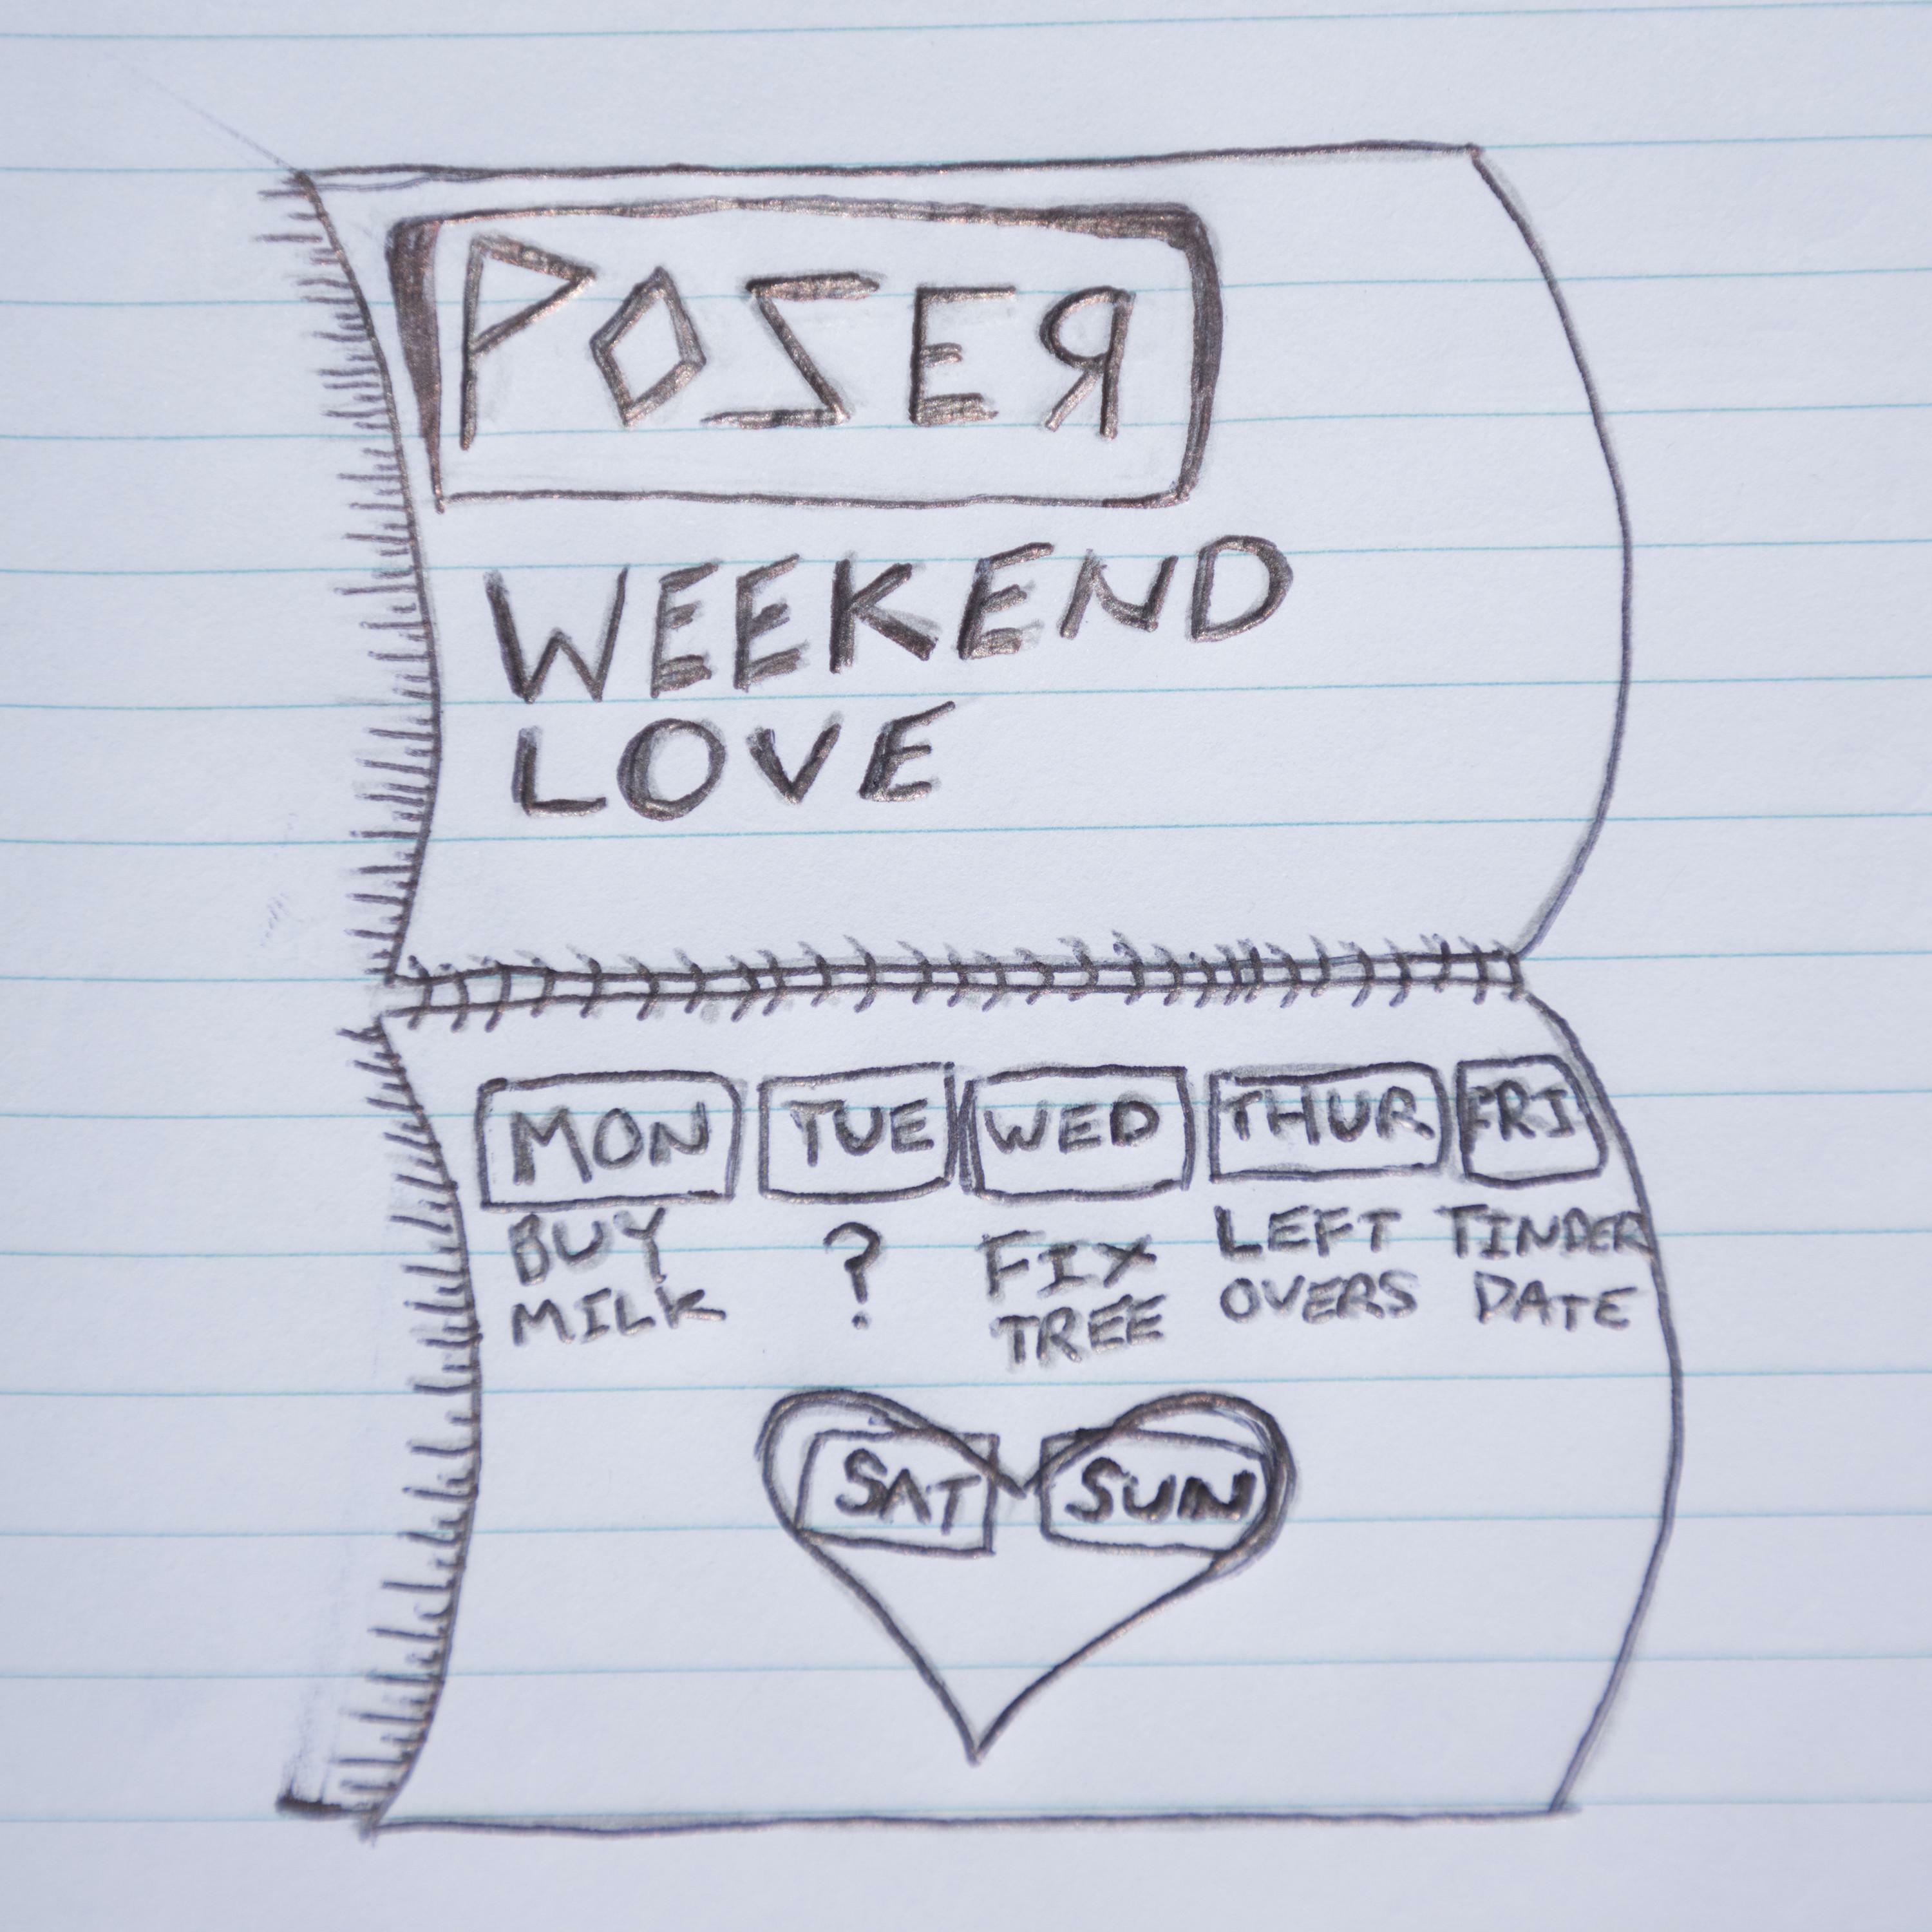 POSER
WEEKEND
LOVE
MON TUE WED THUR FRI
BUY MILK
?
FIX TREE
LEFT OVERS
TINDER DATE
SAT SUN